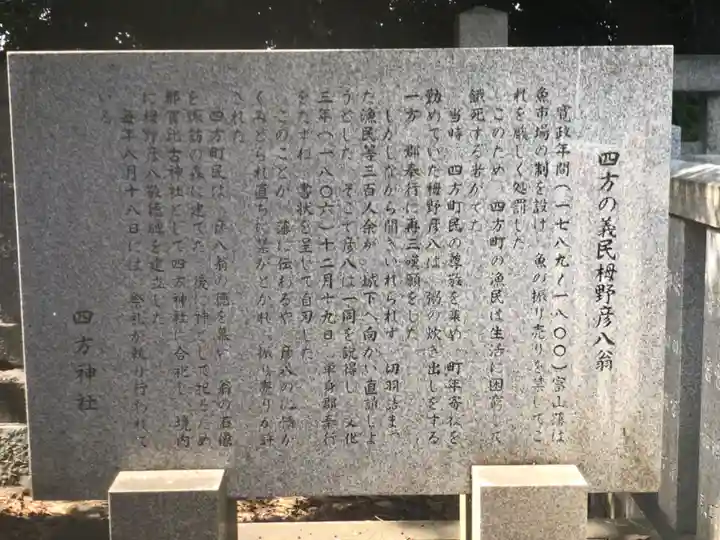 四方の義民栂野彦八翁
寛政年間(一七八九~一八〇〇)富山藩は
魚市場の制を設け 魚の振り売りを禁じてこ
れを厳しく処罰した
このため 四方町の漁民は生活に困窮して
餓死する者がでた
当時 四方町民の尊敬を集め 町年寄役を
勤めていた栂野彦八は 粥の炊き出しをする
一方 郡奉行に再三嘆願をした
しかしながら聞きいれられず 切羽詰まっ
た漁民等三百人余が 城下へ向かい直訴しよ
うとした そこで彦八は一同を説得し 文化
三年(一八〇六)十二月十九日 単身郡奉行
をたずね 書状を呈して自刃した
このことが 藩に伝わるや 彦八の心情が
くみとられ直ちに禁がとかれ 振り売りが許
された
四方町民は 彦八翁の徳を慕い 翁の石像
を諏訪の森に建てた 後に神として祀るため
那賀比古神社として四方神社に合祀し 境内
に栂野彦八敬徳碑を建立した
毎年八月十八日には 祭礼が執り行われて
いる
四方神社